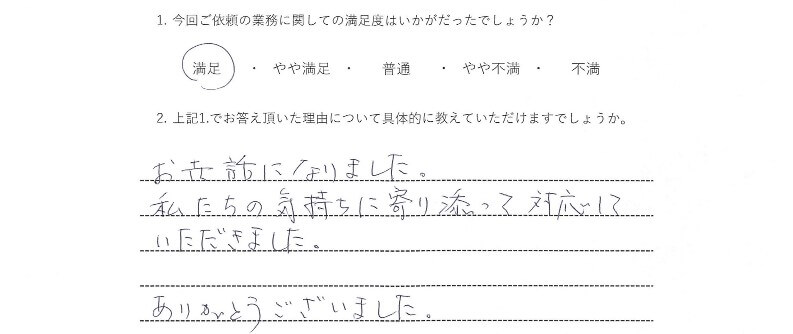 1. 今回ご依頼の業務に関しての満足度はいかがだったでしょうか？
満足 ・ やや満足 ・ 普通 ・ やや不満 ・ 不満
2. 上記1.でお答え頂いた理由について具体的に教えていただけますでしょうか。
お世話になりました。
私たちの気持ちに寄り添って対応して
いただきました。
ありがとうございました。